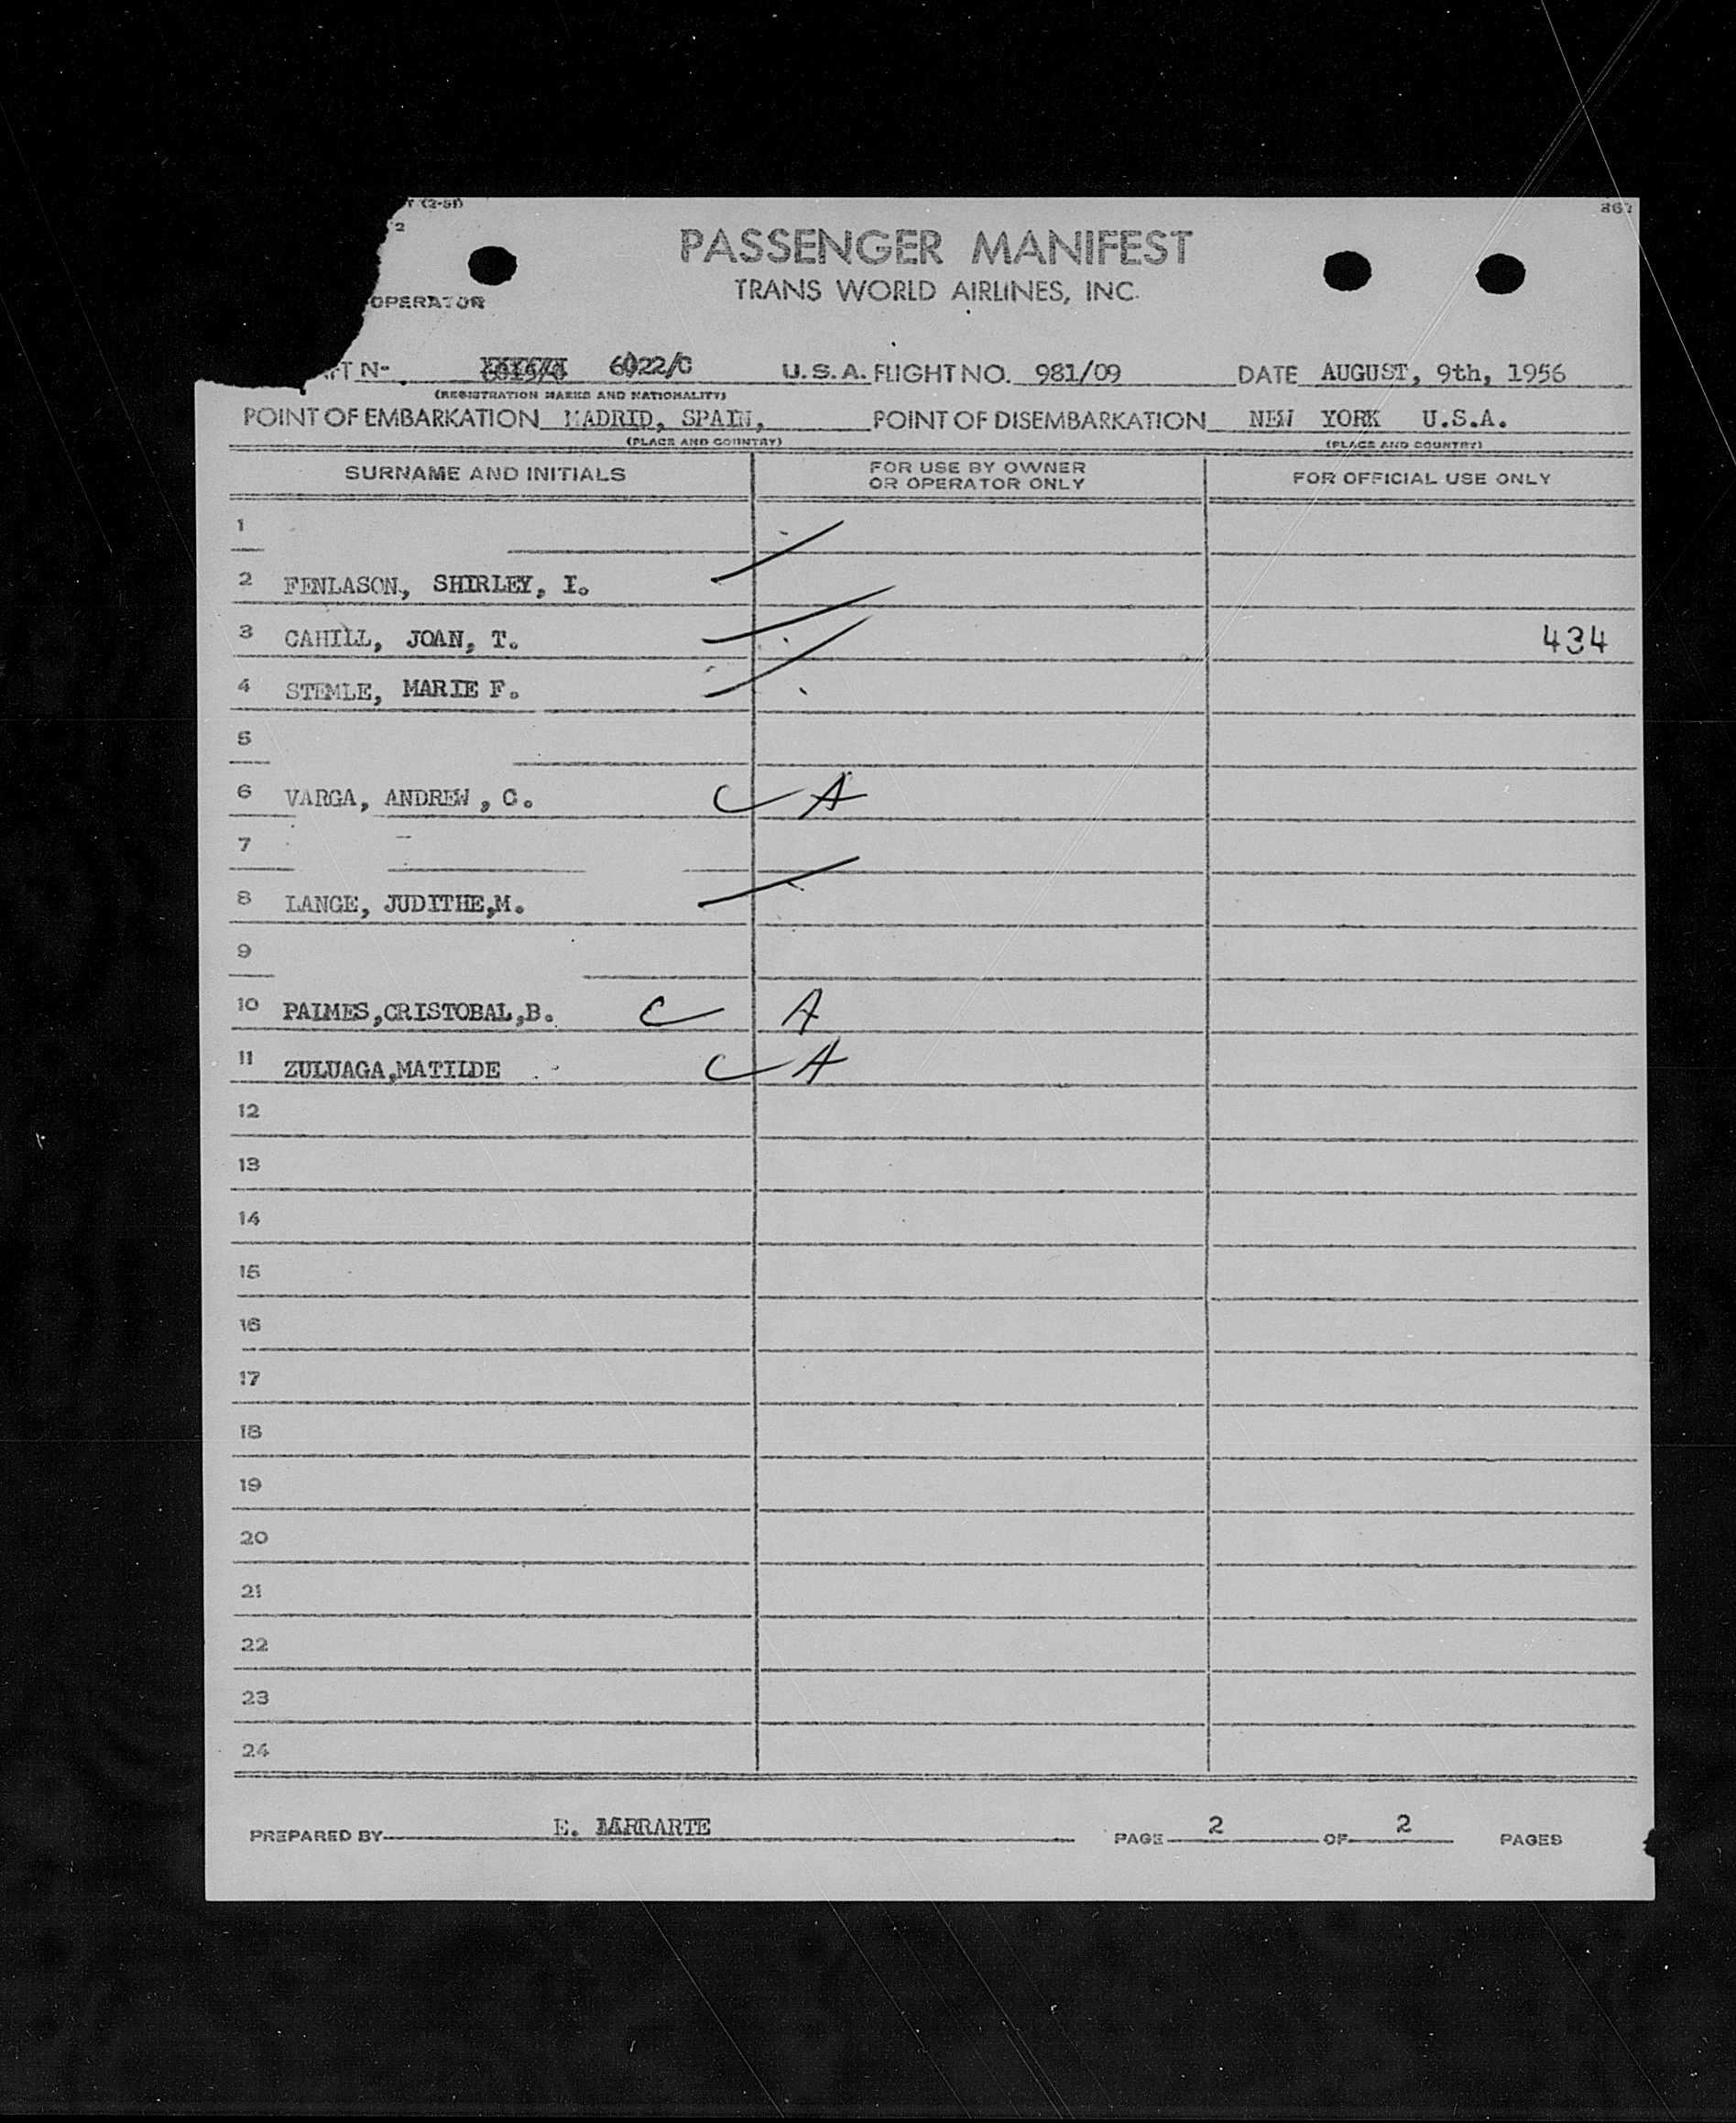 T (2-51)
2
867
PASSENGER MANIFEST
TRANS WORLD AIRLINES, INC.
OPERATOR
AFT No. 6022/C U.S.A. FLIGHT NO. 981/09 DATE AUGUST, 9th, 1956
(REGISTRATION MARKS AND NATIONALITY)
POINT OF EMBARKATION MADRID, SPAIN, POINT OF DISEMBARKATION NEW YORK U.S.A.
(PLACE AND COUNTRY) (PLACE AND COUNTRY)
SURNAME AND INITIALS FOR USE BY OWNER OR OPERATOR ONLY FOR OFFICIAL USE ONLY
1
2 FENLASON, SHIRLEY, I.
3 CAHILL, JOAN, T. 434
4 STEMLE, MARIE F.
5
6 VARGA, ANDREW, C. C A
7
8 LANGE, JUDITHE,M.
9
10 PALMES,CRISTOBAL,B. C A
11 ZULUAGA,MATILDE C A
12
13
14
15
16
17
18
19
20
21
22
23
24
PREPARED BY E. LARRARTE PAGE 2 OF 2 PAGES